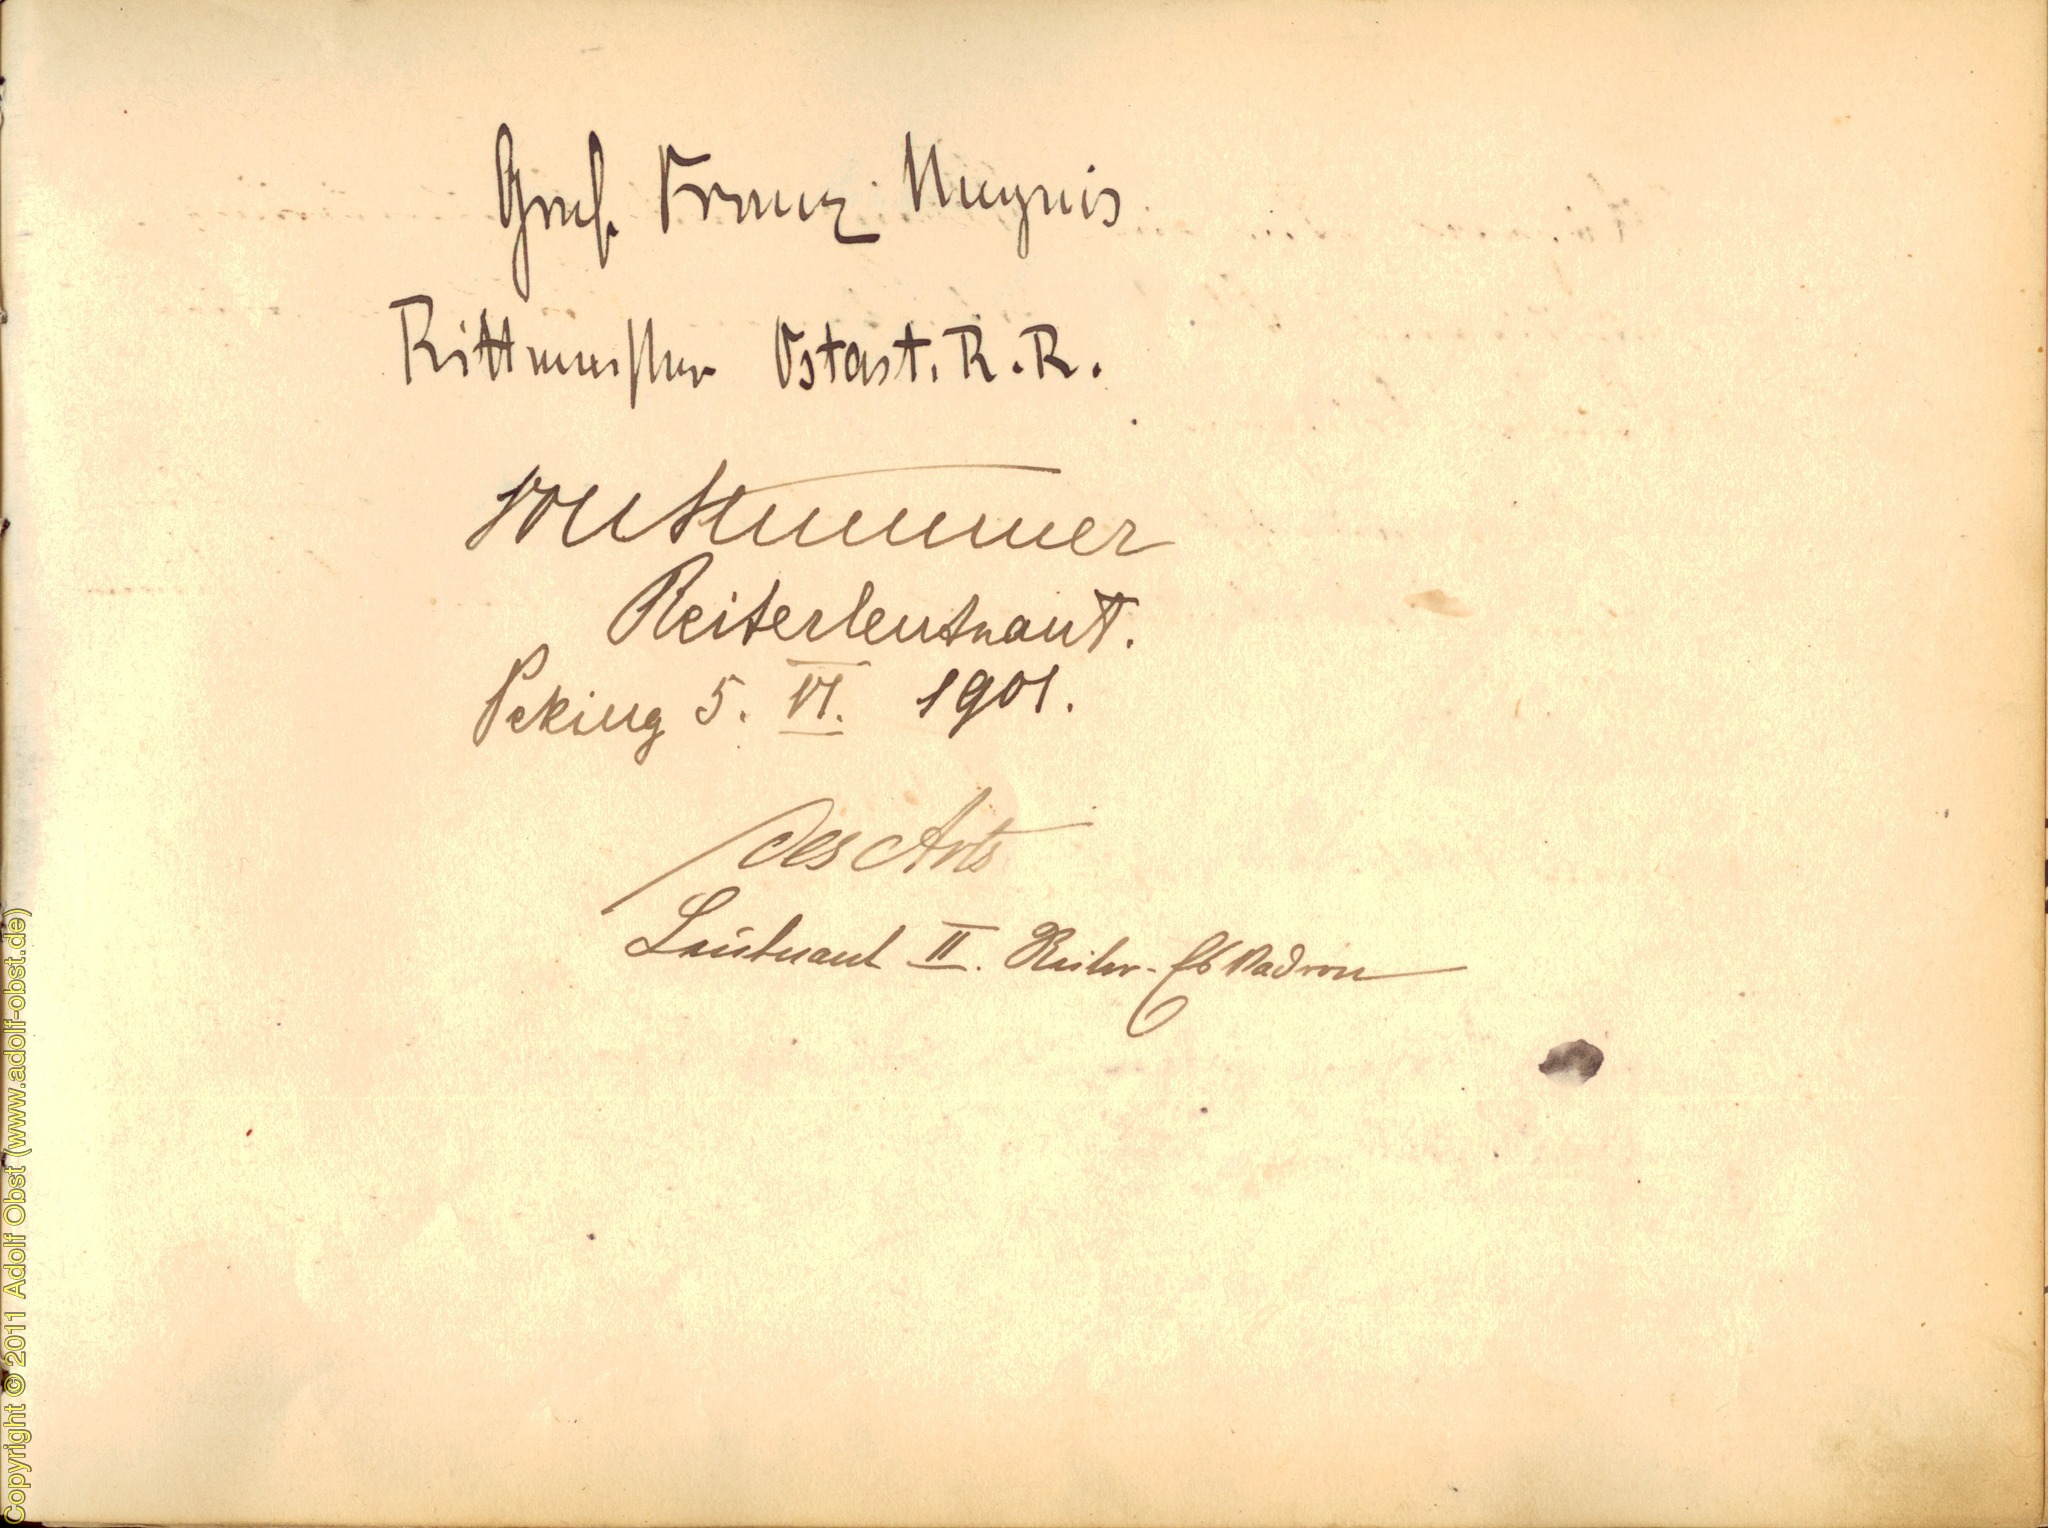 Graf. Franz Magnis
Rittmeister Ostast. R. R.
von Stummer
Reiterleutnant.
Peking 5. VI. 1901.
des Arts
Leutnant II. Reiter-Eskadron
Copyright © 2011 Adolf Obst (www.adolf-obst.de)